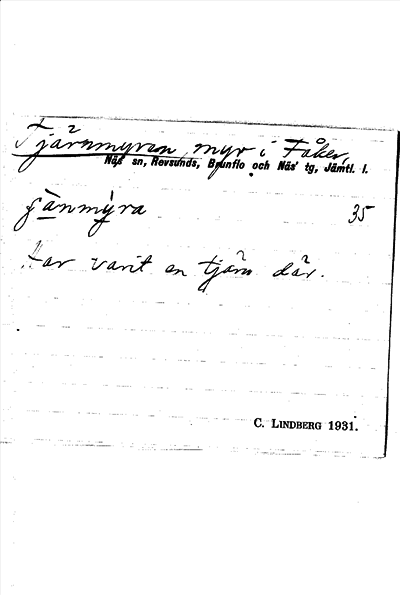 Tjärnmyren, myr i Fåker,
Näs sn, Revsunds, Brunflo och Näs' tg, Jämtl. l.
çä̀nmy̆ra 35
Har varit en tjärn där.
C. LINDBERG 1931.